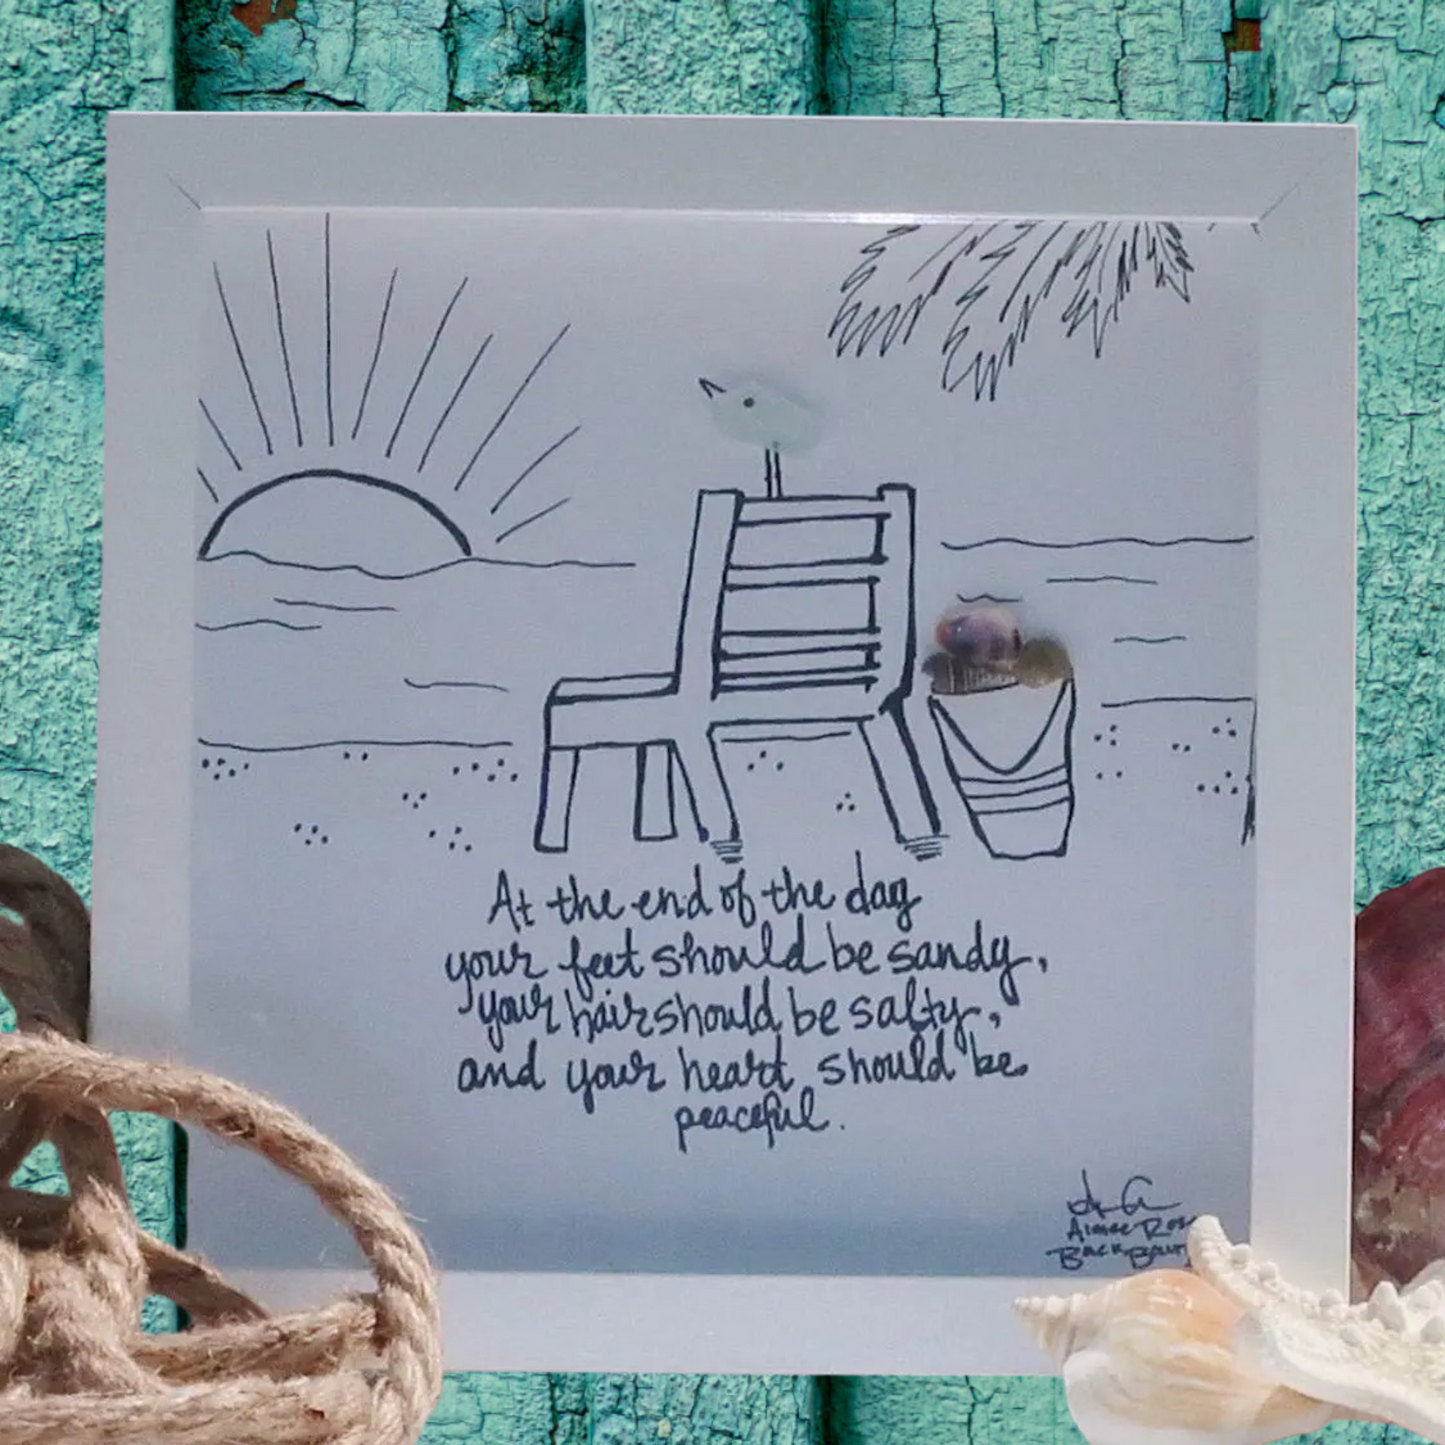 At the end of the day
your feet should be sandy,
your hair should be salty,
and your heart should be
peaceful.
Aimee Rose
Back